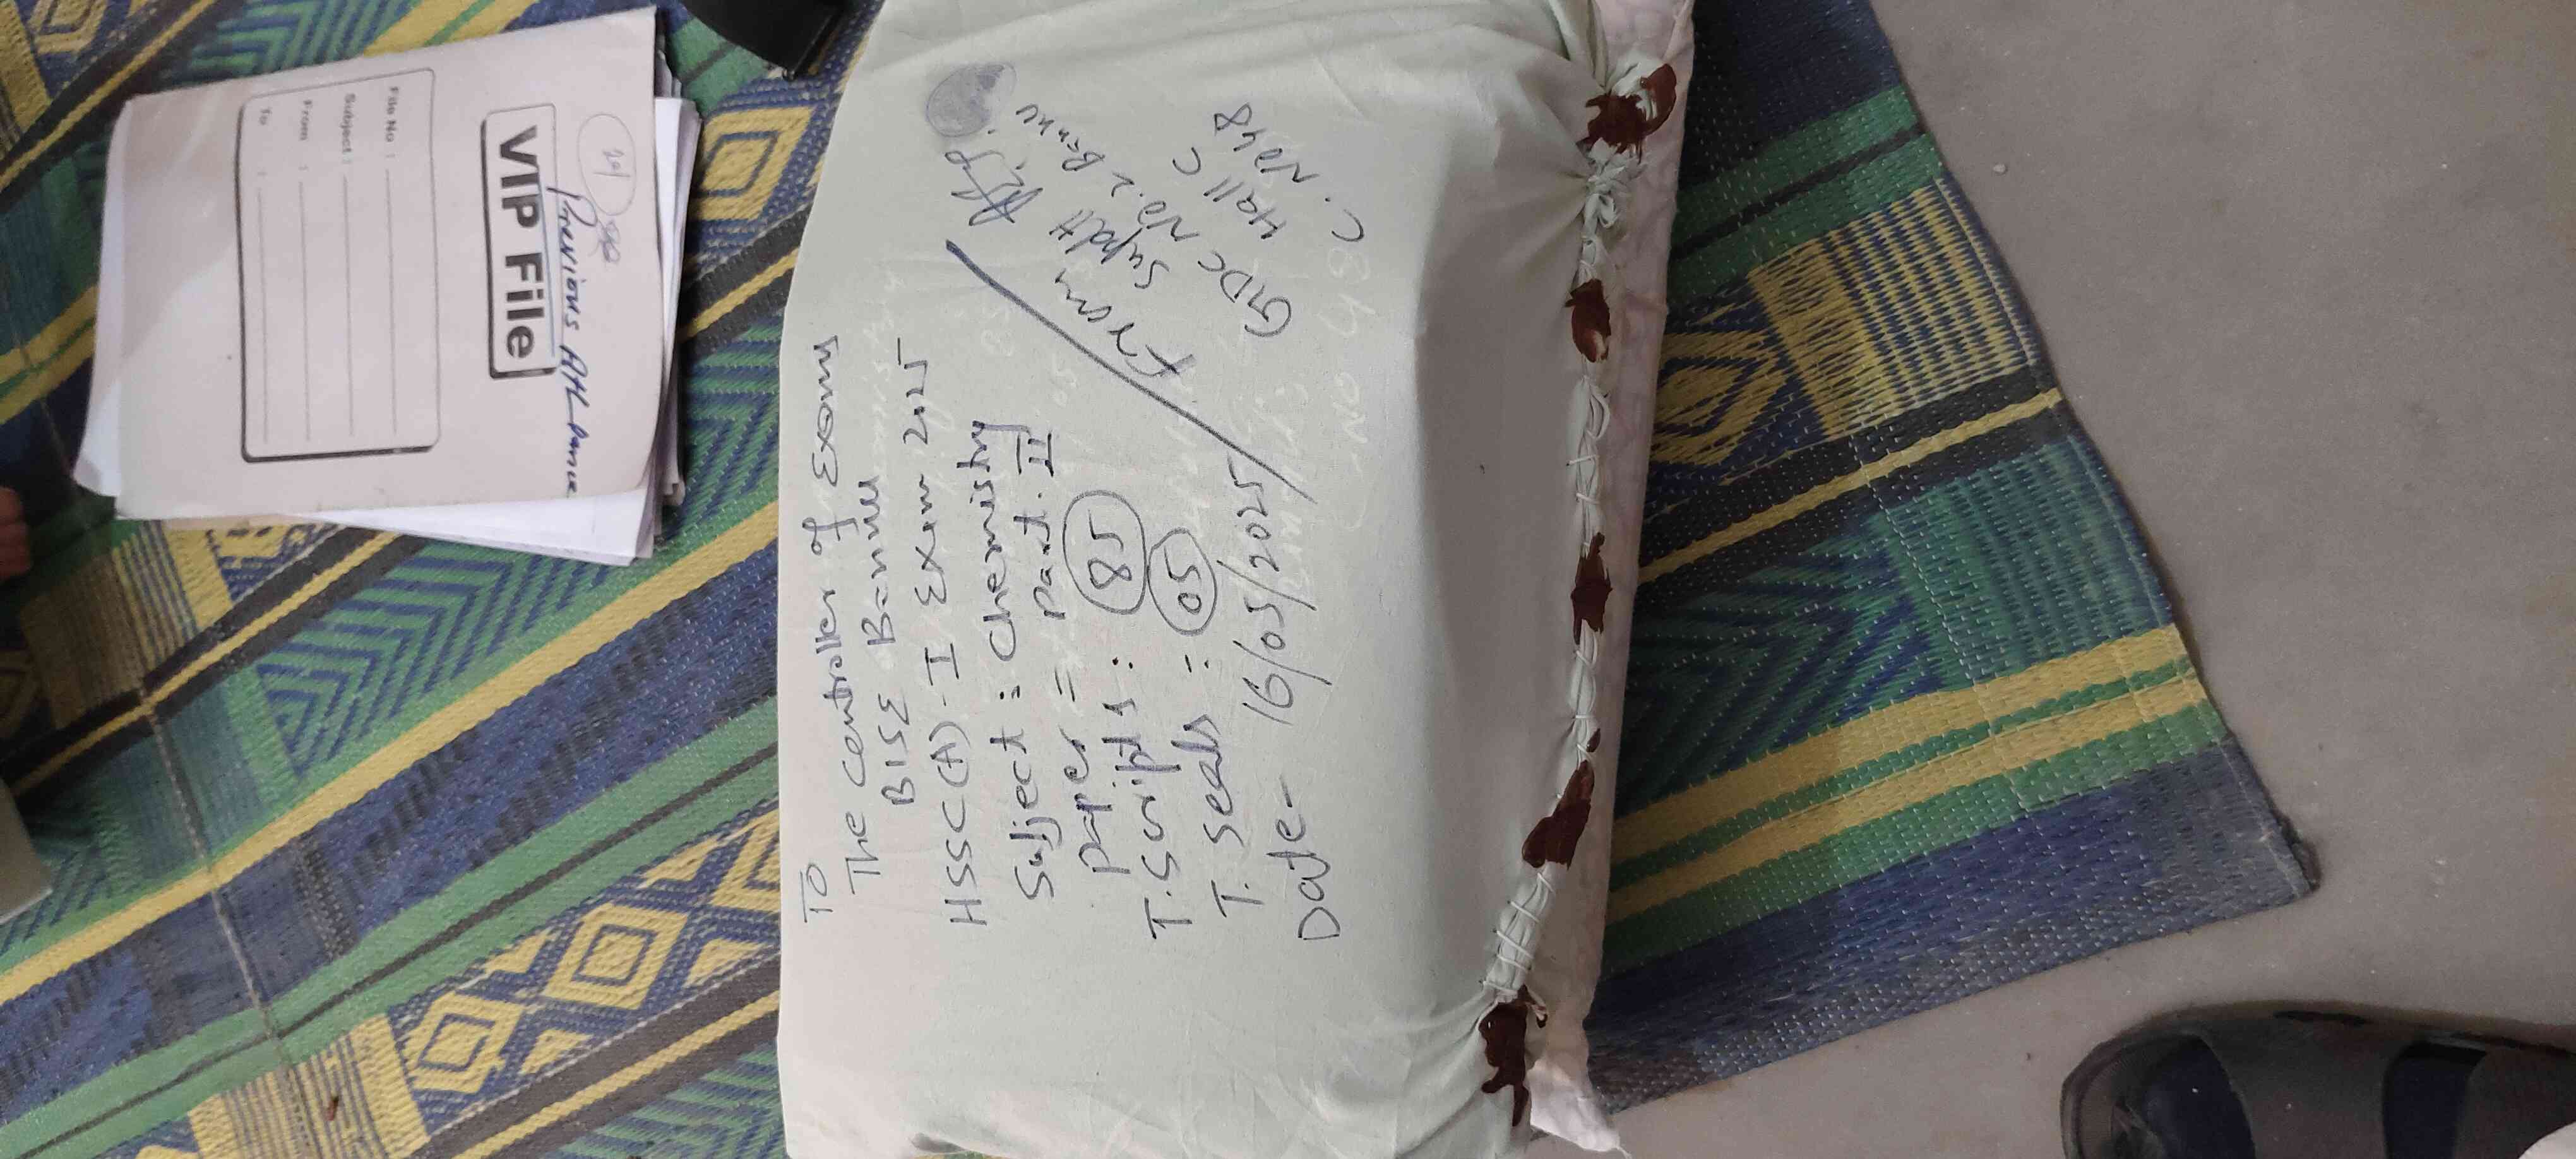 To
The Controller of Exams
BISE Bannu
HSSC(A)-I Exam 2025
Subject: Chemistry
Paper = Part. II
T. Scripts: 85
T. Seals: 05
Date- 16/05/2025
From
Supdtt
GDC No. 2 Bannu
Hall C
C. No 48
VIP File
Previous Att-dance
File No :
Subject :
From :
To :